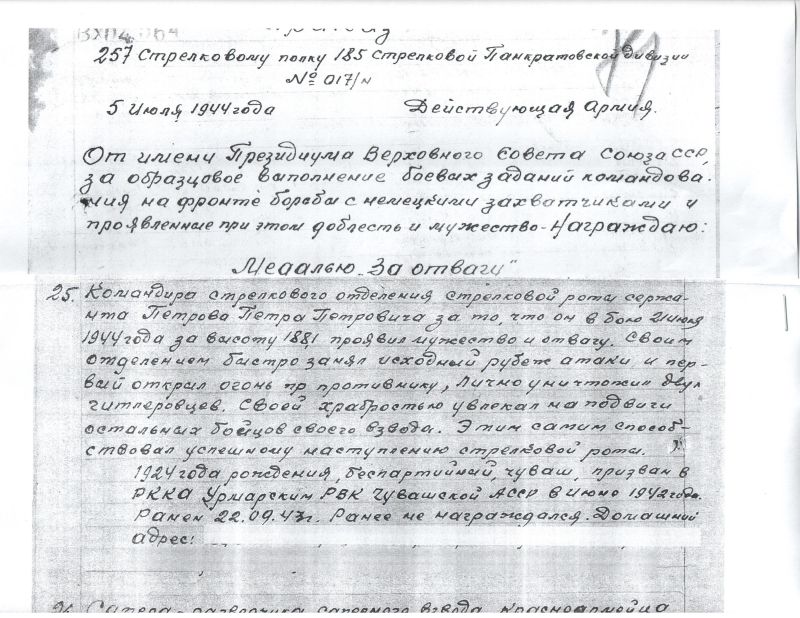 Приказ
ВХ04.064
257 Стрелковому полку 185 стрелковой Панкратовской дивизии
№ 017/н
5 Июля 1944 года Действующая Армия.
От имени Президиума Верховного Совета Союза ССР,
за образцовое выполнение боевых заданий командова-
ния на фронте борьбы с немецкими захватчиками и
проявленные при этом доблесть и мужество - Награждаю:
Медалью „За отвагу"
25. Командира стрелкового отделения стрелковой роты сержа-
нта Петрова Петра Петровича за то, что он в бою 21 июня
1944 года за высоту 188,1 проявил мужество и отвагу. Своим
отделением быстро занял исходный рубеж атаки и пер-
вый открыл огонь пр противнику, Лично уничтожил двух
гитлеровцев. Своей храбростью увлекал на подвиги
остальных бойцов своего взвода. Этим самим способ-
ствовал успешному наступлению стрелковой роты.
1924 года рождения, беспартийный, чуваш, призван в
РККА Урмарским РВК Чувашской АССР в Июне 1942 года.
Ранен 22.09.43г. Ранее не награждался. Домашний
адрес:
Сапера - разведчика саперного взвода, красноармейца